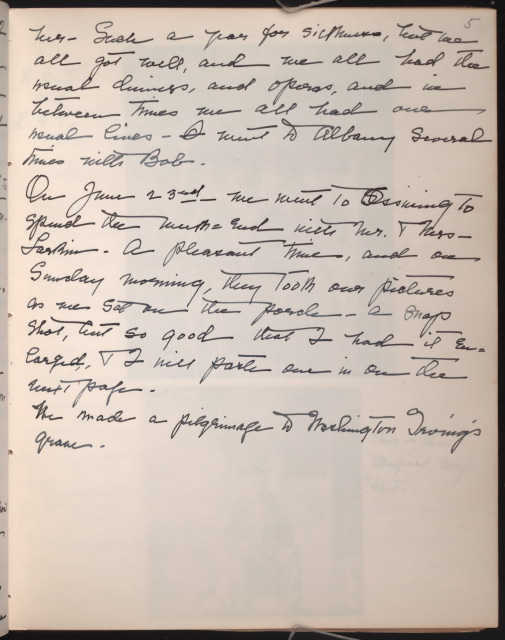 5
her - Such a year for sickness, but we
all got well, and we all had the
usual dinners, and operas, and in
between times we all had our
usual lives - I went to Albany several
times with Bob.
On June 23rd - we went to Ossining to
spend the week-end with Mr. & Mrs-
Larkin. A pleasant time, and on
Sunday morning, they took our pictures
as we sat on the porch - a snap
shot, but so good that I had it en=
larged, & I will paste one in on the
next page.
We made a pilgrimage to Washington Irving's
grave.